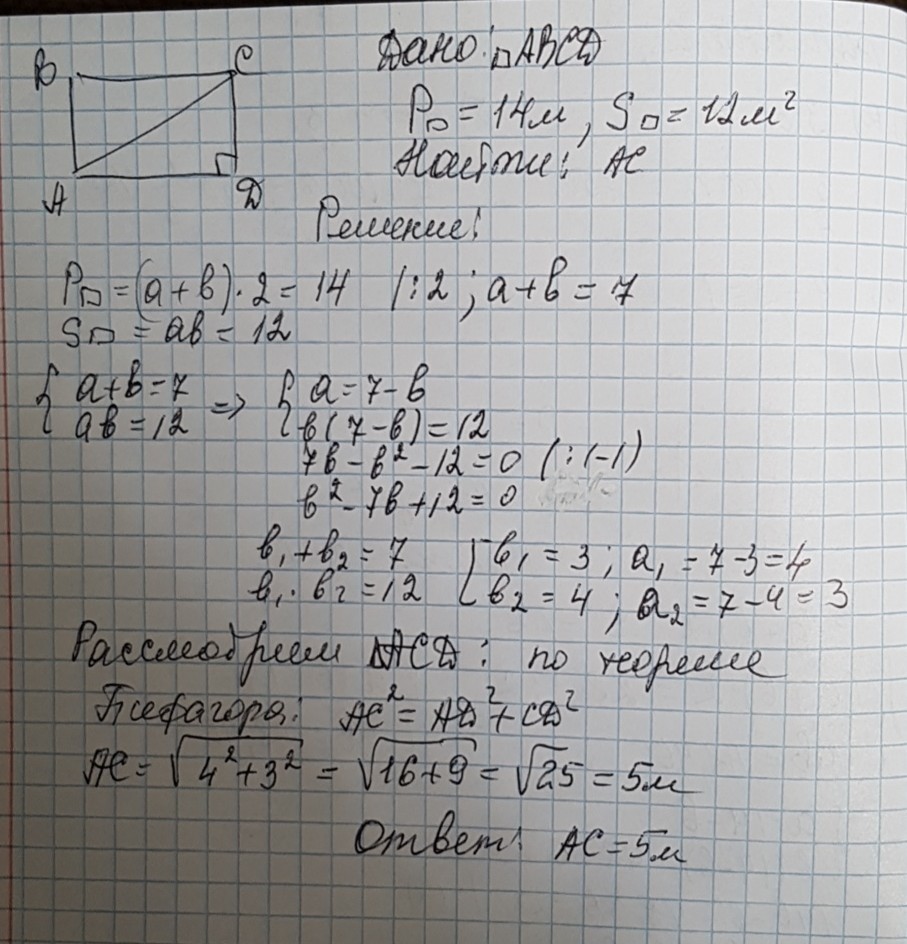 B C
A D
Дано: □ABCD
P□ = 14м, S□ = 12м²
Найти: AC
Решение:
P□ = (a+b)·2 = 14 |:2 ; a+b = 7
S□ = ab = 12
{ a+b=7 => { a=7-b
{ ab=12 { b(7-b)=12
7b-b²-12=0 (:(-1)
b²-7b+12=0
b₁+b₂=7 [ b₁=3; a₁=7-3=4
b₁·b₂=12 [ b₂=4; a₂=7-4=3
Рассмотрим ΔACD: по теореме
Пифагора: AC²=AD²+CD²
AC=√4²+3² = √16+9 = √25 = 5м
Ответ: AC=5м